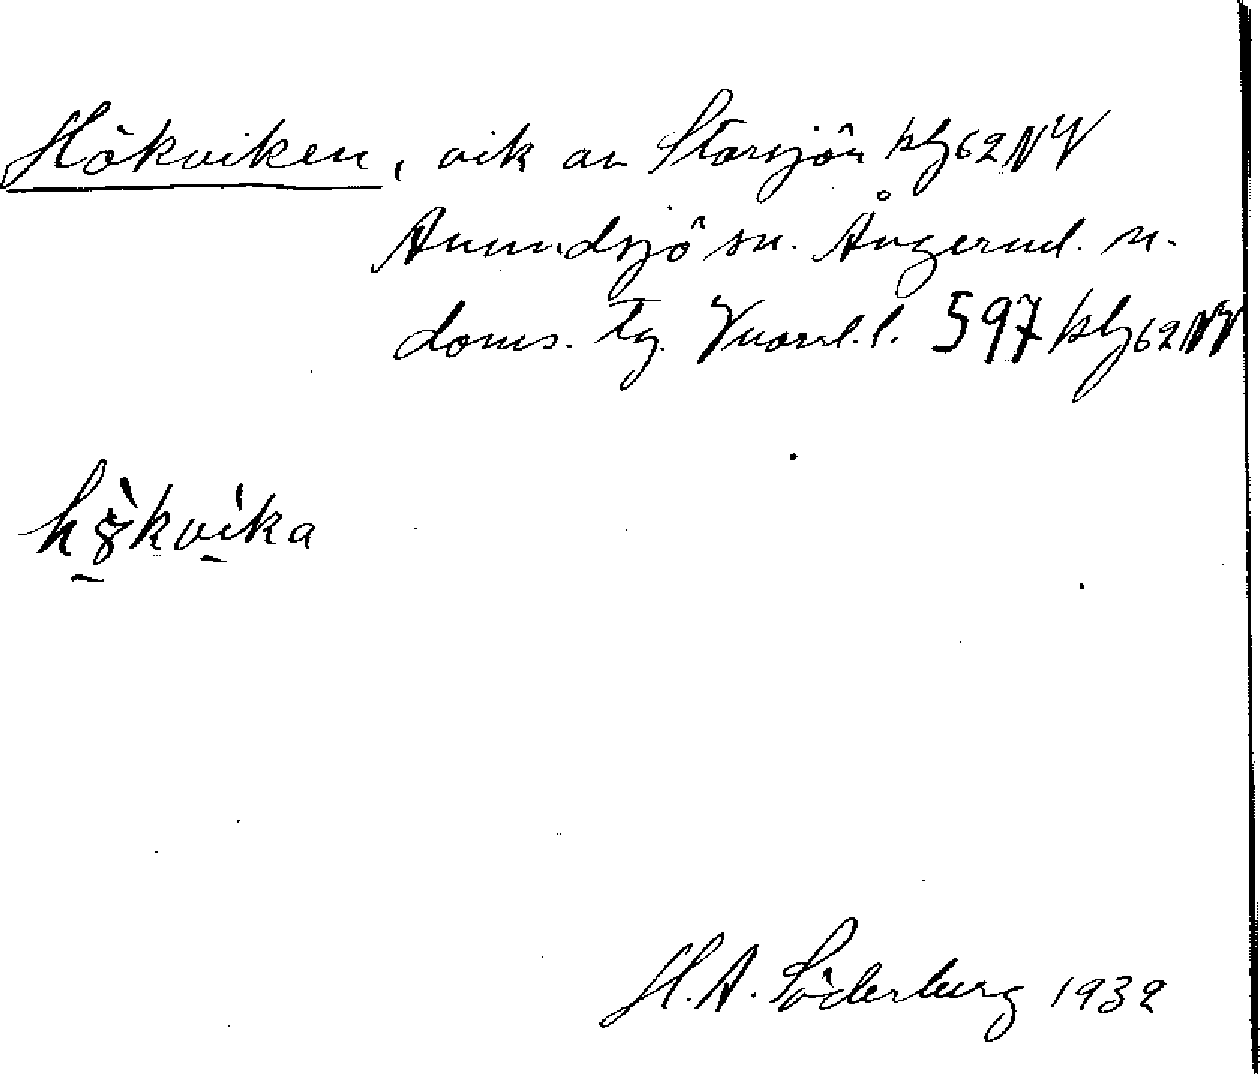 Hökviken, vik av Storsjön kbl 62 NV
Anundsjö sn. Ångerml. n.
doms. tg. 597 kbl 62 NV
hö̀kvíka
H. A. Söderberg 1932